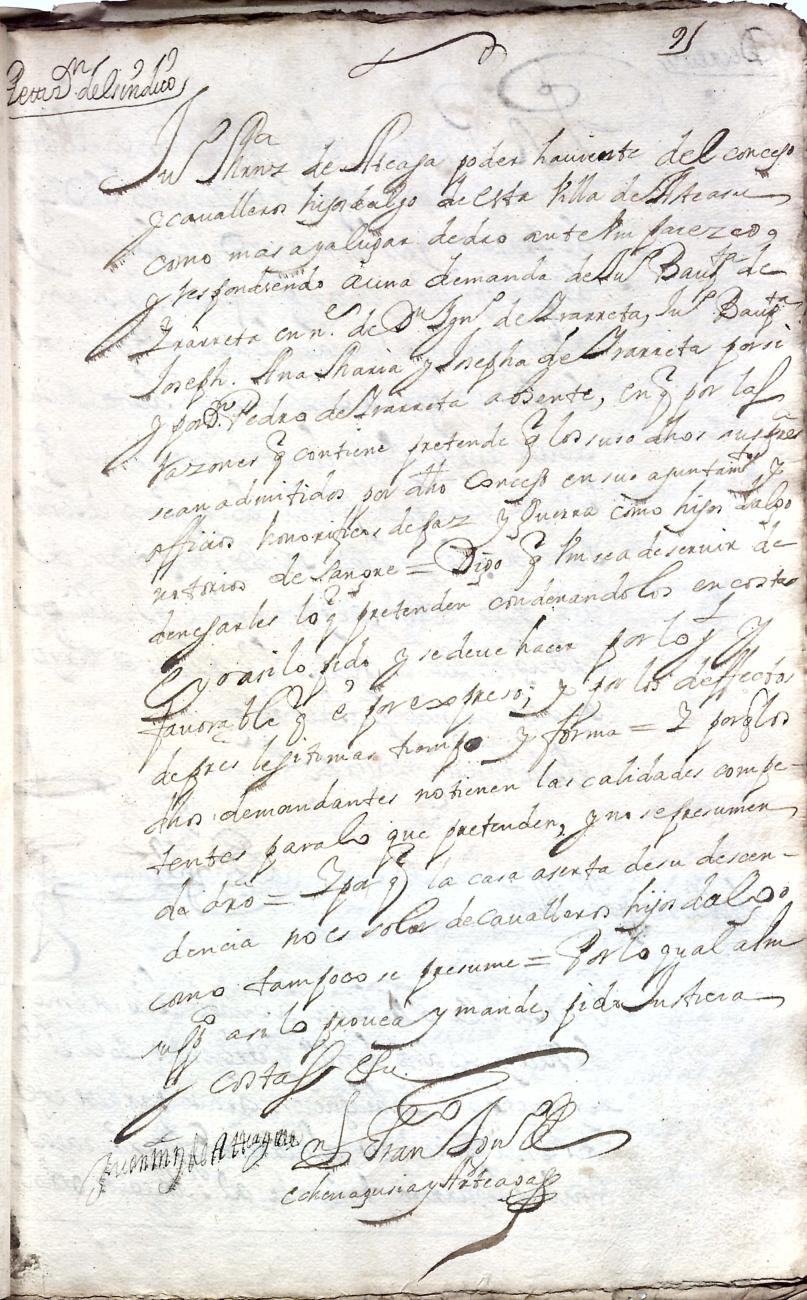 21
Petizn del sindico
Jun Mrnz de Ateaga poder haviente del concejo
y cavalleros hijosdalgo de esta Villa de Asteasu
como mas aya lugar de dro ante Vm parezco
y respondiendo a una demanda de Jun Baupta de
Yrarreta en ne de Dn Ygno de Yrarreta, Jun Baupta
Joseph. Ana Maria y Josepha de Yrarreta por si
y por Dn Pedro de Yrarreta absente, en q por las
razones q contiene pretende q los suso dhos sus ptes
sean admitidos por dho Concejo en sus ajuntamtos y
officios honorificos de paz y Guerra como hijos dalgo
notorios de sangre = Digo q Vm sea de servir de
denegarles lo q pretenden condenandolos en costas
q yo asi lo pido y se deve hacer por lo gl y
favorable q e por expreso; y por los deffectos
de ptes lexitimas tiempo y forma = Y porq los
dhos demandantes no tienen las calidades compe-
tentes para lo que pretenden, y no se presumen
de dro = Y por q la casa aserta de su descen-
dencia no es solar de cavalleros hijos dalgo
como tampoco se presume = Por lo qual a Vm
suppco asi lo provea y mande, pido Justicia
y costas Etta
Juan mrnz de Atteaga
Ldo Dn Fran Ygno de
echenagusia y Arteaga